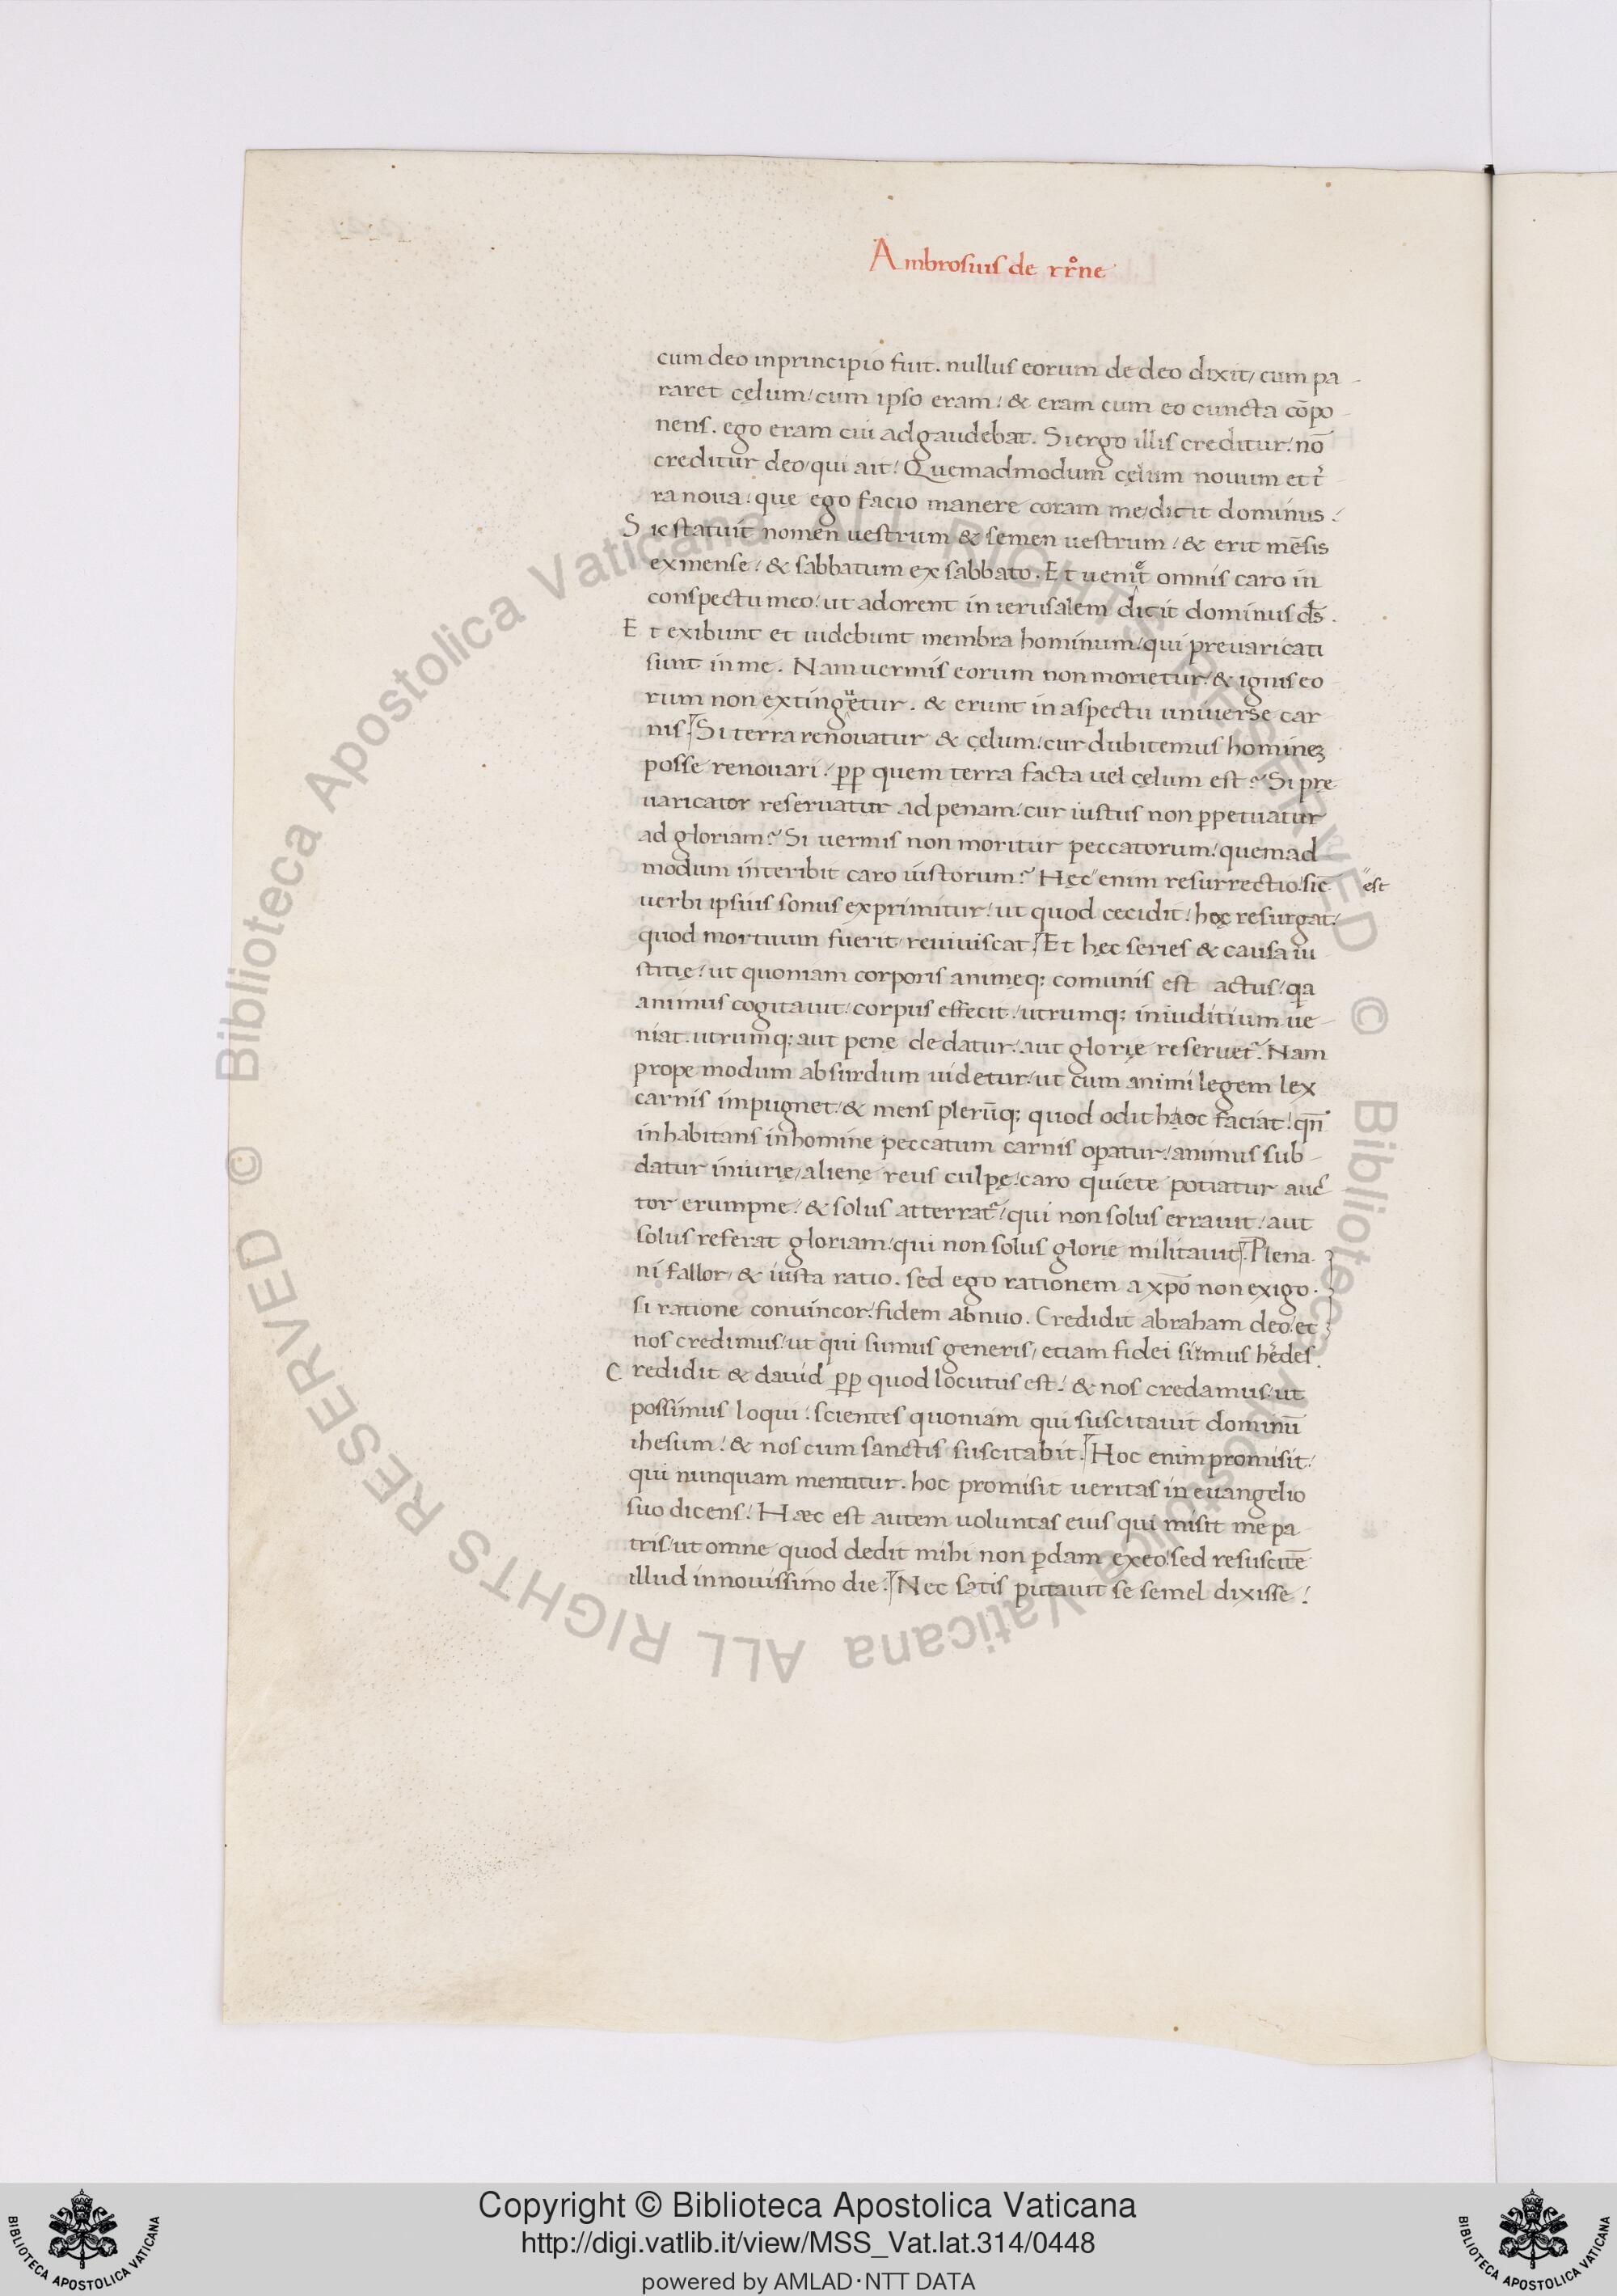 Ambrosius de rr̊ne
cum deo inprincipio fuit. nullus eorum de deo dixit/ cum pa-
raret cęlum/ cum ipso eram/ & eram cum eo cuncta cōpo-
nens. ego eram cui adgaudebat. Si ergo illis creditur/ nō
creditur deo/ qui ait/ Quemadmodum cęlum nouum et t̓
ra noua/ que ego facio manere coram me/ dicit dominus/
Sic statuit nomen uestrum & semen uestrum/ & erit mēsis
ex mense/ & sabbatum ex sabbato. Et ueniet omnis caro in
conspectu meo/ ut adorent in ierusalem dicit dominus ds̄.
Et exibunt et uidebunt membra hominum/ qui preuaricati
sunt in me. Nam uermis eorum non morietur/ & ignis eo
rum non extinguetur. & erunt in aspectu uniuerse car
nis. Si terra renouatur & cęlum/ cur dubitemus homineʒ
posse renouari/ ꝓpꝑ quem terra facta uel cęlum est? Si pre
uaricator reseruatur ad penam/ cur iustus non ꝑpetuatur
ad gloriam? Si uermis non moritur peccatorum/ quemad-
modum interibit caro iustorum? Hęc" enim resurrectio/ sic̄ "est
uerbi ipsius sonus exprimitur/ ut quod cecidit/ hoc resurgat/
quod mortuum fuerit/ reuiuiscat. Et hęc series & causa iu
stitię/ ut quoniam corporis animęq; comunis est actus/ qa
animus cogitauit/ corpus effecit/ utrumq; in iuditium ue-
niat. utrumq; aut penę dedatur/ aut glorię reseruet̃. Nam
prope modum absurdum uidetur/ ut cum animi legem lex
carnis impugnet/ & mens plerūq; quod odit haoc faciat/ qn̄
inhabitans in homine peccatum carnis oꝑatur/ animus sub-
datur iniurię/ alienę reus culpę/ caro quiete potiatur auc̄
tor erumpne/ & solus atterrat̃/ qui non solus errauit/ aut
solus referat gloriam/ qui non solus glorie militauit. Plena.
ni fallor/ & iusta ratio. sed ego rationem a xp̄o non exigo.
si ratione conuincor/ fidem abnuo. Credidit abraham deo/ et
nos credimus/ ut qui sumus generis/ etiam fidei simus he̓des.
Credidit & dauid ꝓpꝑ quod locutus est/ & nos credamus/ ut
possimus loqui/ scientes quoniam qui suscitauit dominū
ihesum/ & nos cum sanctis suscitabit. Hoc enim promisit/
qui nunquam mentitur. hoc promisit ueritas in euangelio
suo dicens/ Hæc est autem uoluntas eius qui misit me pa
tris/ ut omne quod dedit mihi non ꝑdam ex eo/ sed resuscitē
illud in nouissimo die. Nec satis putauit se semel dixisse/
Copyright © Biblioteca Apostolica Vaticana
http://digi.vatlib.it/view/MSS_Vat.lat.314/0448
powered by AMLAD·NTT DATA
BIBLIOTECA APOSTOLICA VATICANA
BIBLIOTECA APOSTOLICA VATICANA
© Biblioteca Apostolica Vaticana ALL RIGHTS RESERVED
© Biblioteca Apostolica Vaticana ALL RIGHTS RESERVED